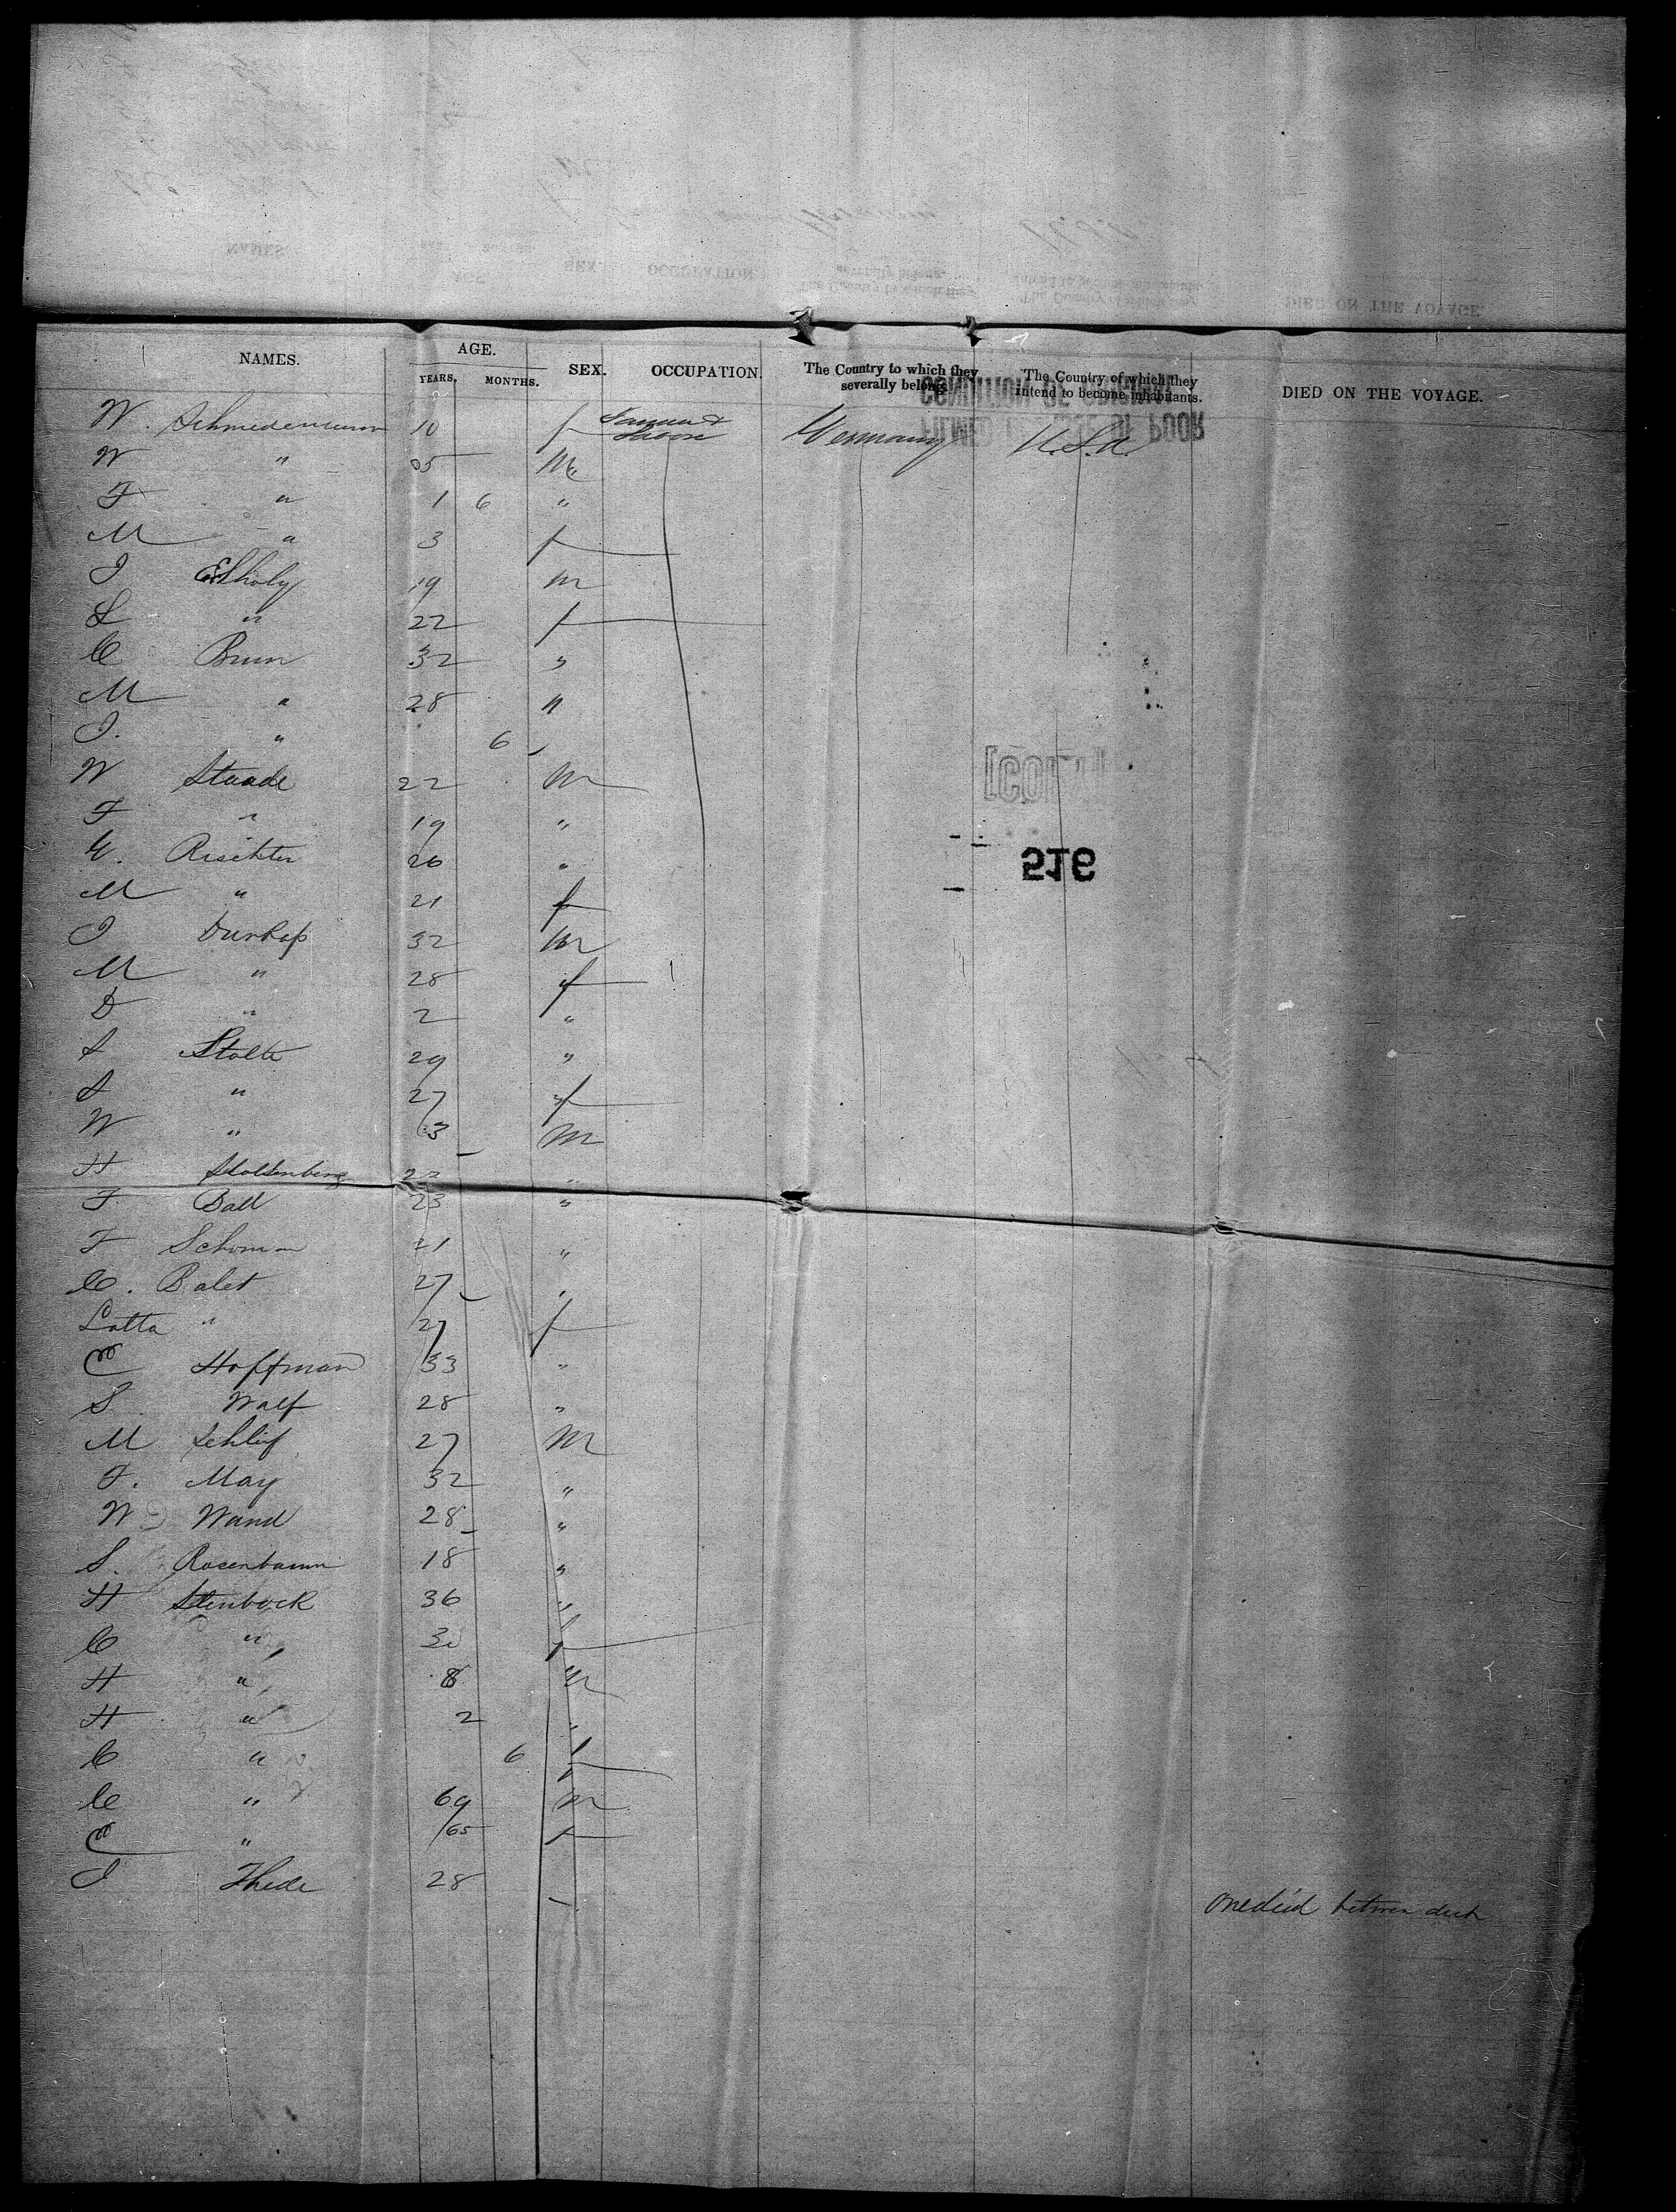 NAMES. AGE. YEARS. MONTHS. SEX. OCCUPATION. The Country to which they severally belong. The Country of which they intend to become inhabitants. DIED ON THE VOYAGE.
W. 10 f Germany U.S.A.
W " 05 M
F " 1 6 "
M " 3 f
J 19 m
L " 22 f
C Brun 32 "
M " 28 "
J. " 6
W Staade 22 M
F " 19 "
G. Rischter 26 "
M " 21 f
J Durkop 32 M
M " 28 f
D " 2 "
S Stolte 29 "
S " 27 f
W " 3 M
H Stoltenberg 22 "
F. Ball 23 "
F Schoman 21 "
C. Balet 27 "
Lotta " 27 f
C Hoffman 33 "
S. Walf 28 "
M Schlif 27 M
F. May 32 "
W Wand 28 "
S. Rosenbaum 18 "
H Stenbock 36 "
C " 30 f
H " 8 m
H " 2 "
C " 6 f
C " 69 m
C " 65 f
J Thede 28
one died between deck
516